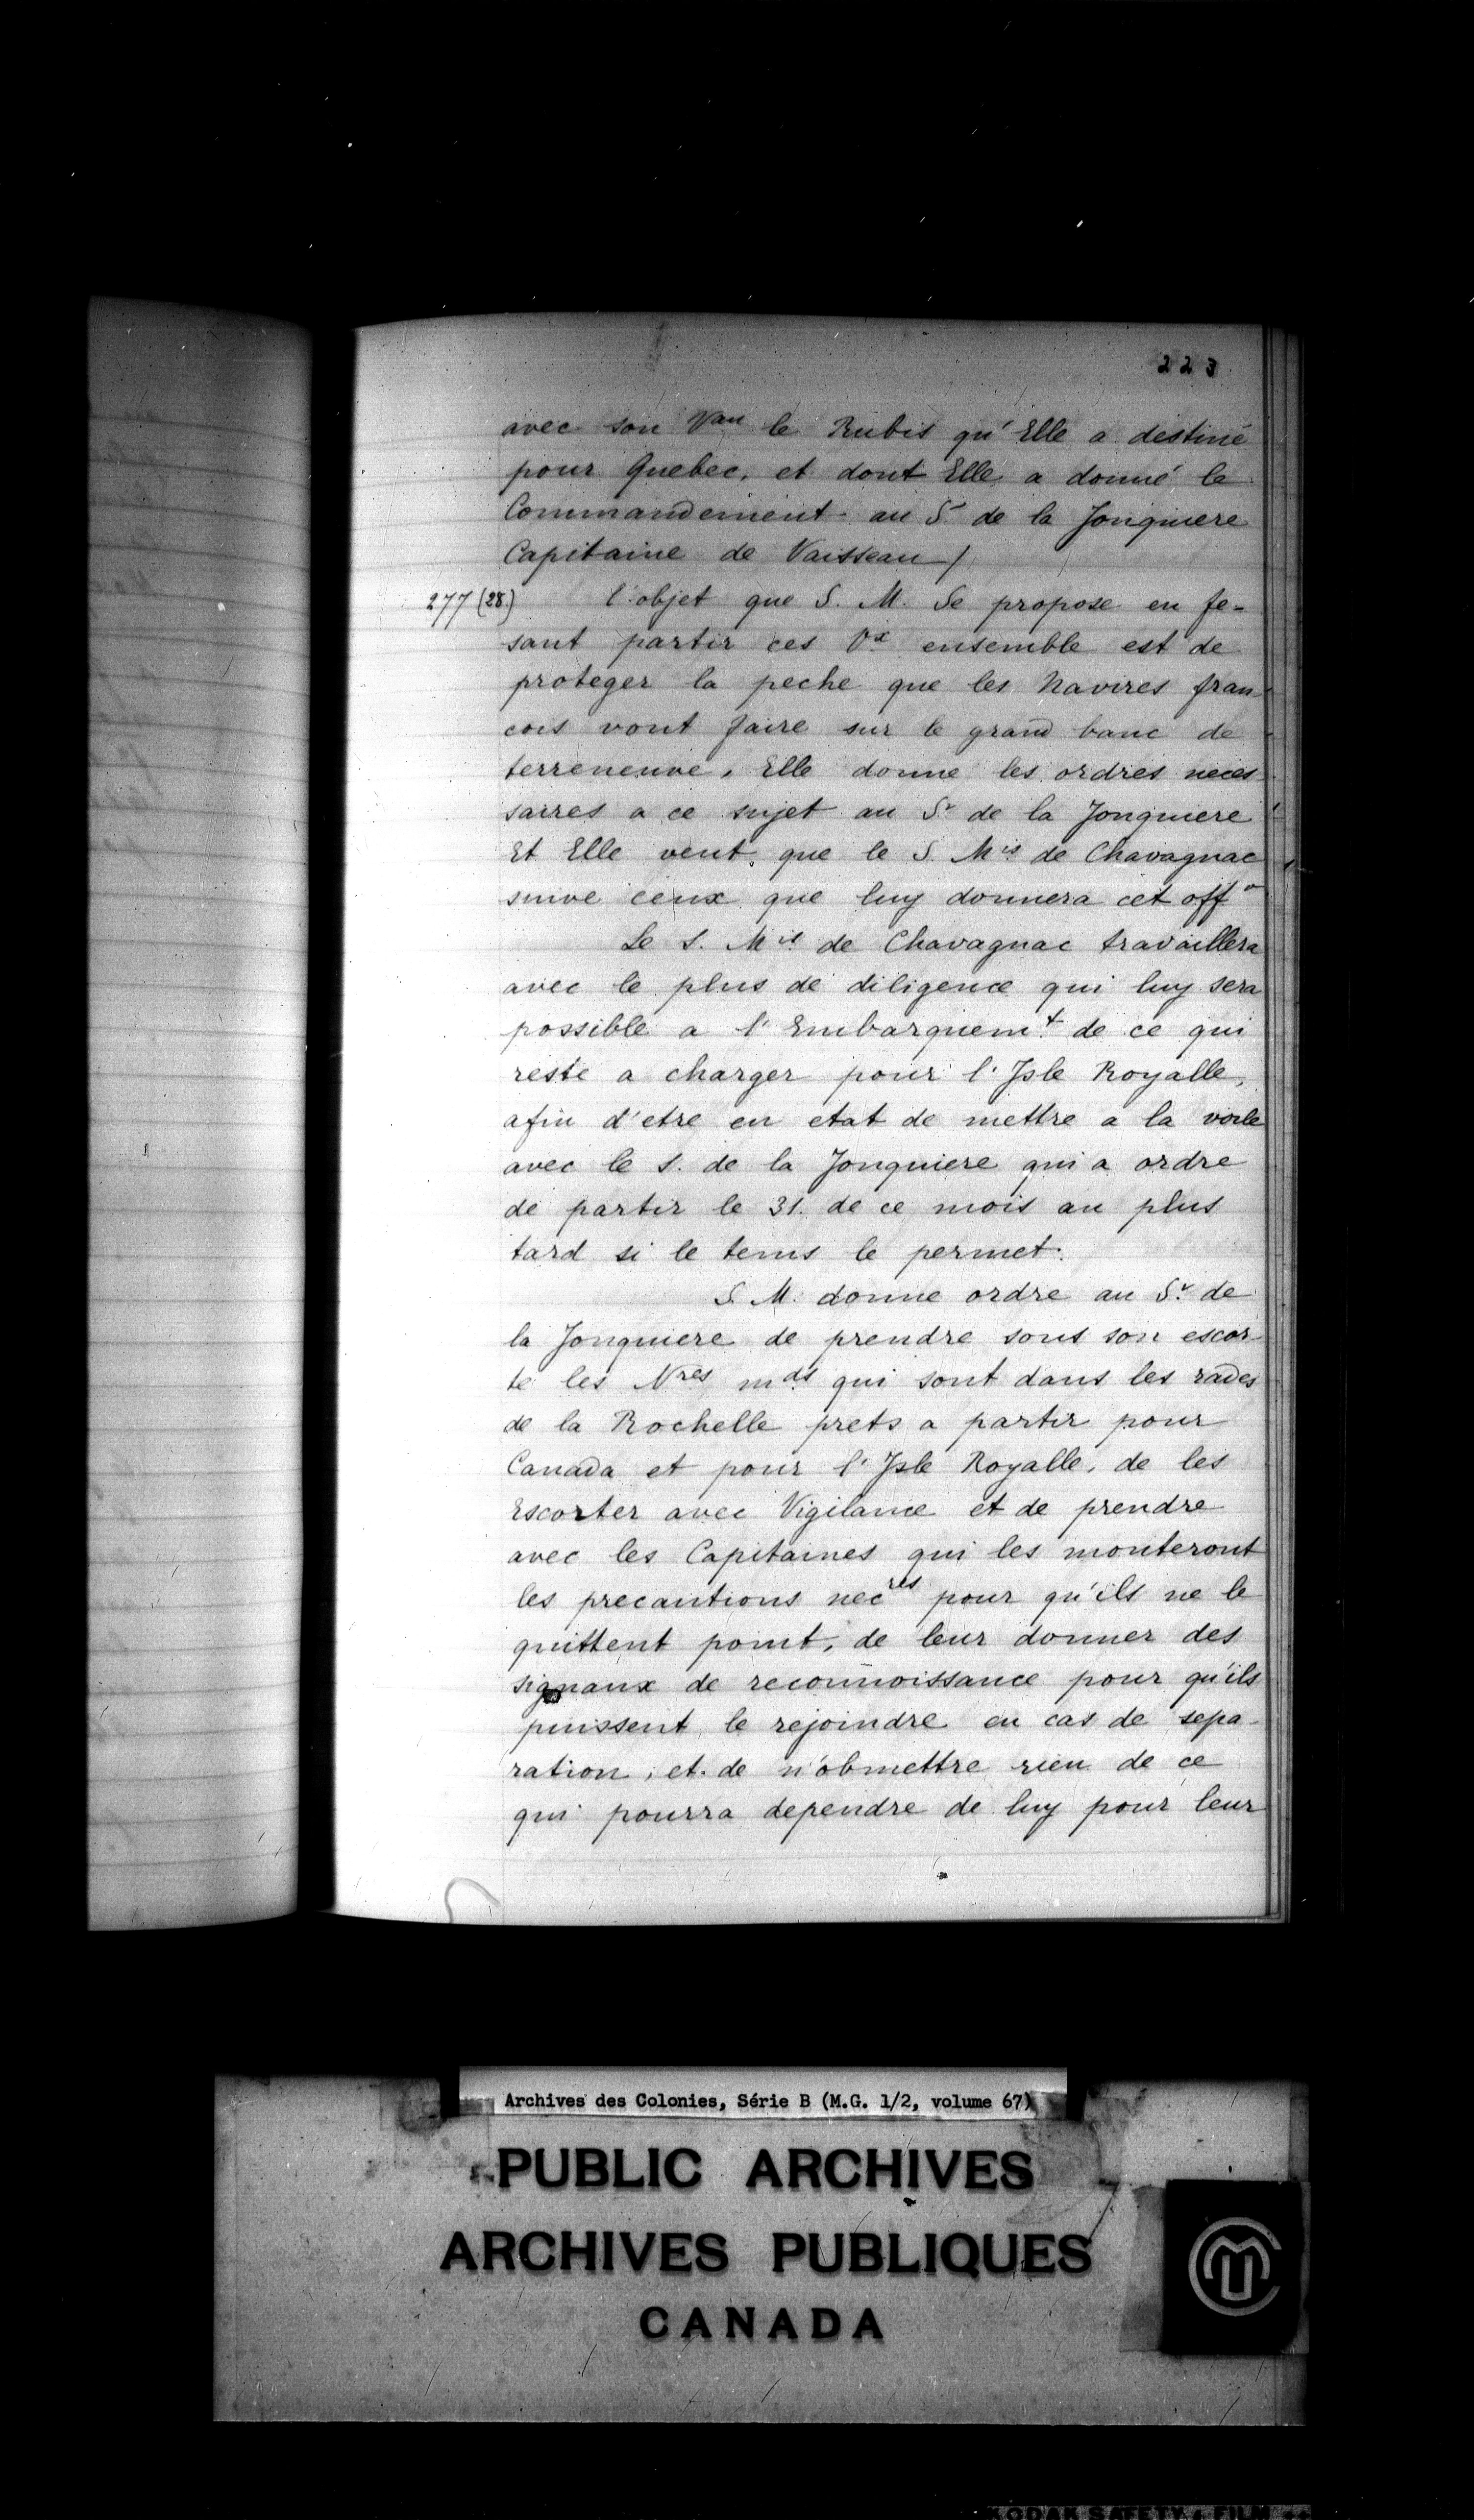 223
avec son Vau le Rubis qu'Elle a destiné
pour Quebec, et dont Elle a donné le
Commandement au S. de la Jonquiere
Capitaine de Vaisseau /
277 (28.) l'objet que S. M. se propose en fe-
sant partir ces Vx ensemble est de
proteger la peche que les Navires fran-
cois vont faire sur le grand banc de
terreneuve, Elle donne les ordres neces-
saires a ce sujet au Sr de la Jonquiere
Et Elle veut, que le S. Mis de Chavagnac
suive ceux que luy donnera cet offr
Le S. Mis de Chavagnac travaillera
avec le plus de diligence qui luy sera
possible a l'Embarquemt. de ce qui
reste a charger pour l'Isle Royalle,
afin d'etre en etat de mettre a la voile
avec le S. de la Jonquiere qui a ordre
de partir le 31. de ce mois au plus
tard si le tems le permet.
S. M. donne ordre au Sr. de
la Jonquiere de prendre sous son escor-
te les Nres mds. qui sont dans les rades
de la Rochelle prets a partir pour
Canada et pour l'Isle Royalle, de les
Escorter avec Vigilance et de prendre
avec les Capitaines qui les monteront
les precautions necres pour qu'ils ne le
quittent point, de leur donner des
signaux de reconnoissance pour qu'ils
puissent le rejoindre en cas de sepa-
ration, et de n'obmettre rien de ce
qui pourra dependre de luy pour leur
Archives des Colonies, Série B (M.G. 1/2, volume 67)
PUBLIC ARCHIVES
ARCHIVES PUBLIQUES
CANADA
KODAK SAFETY FILM